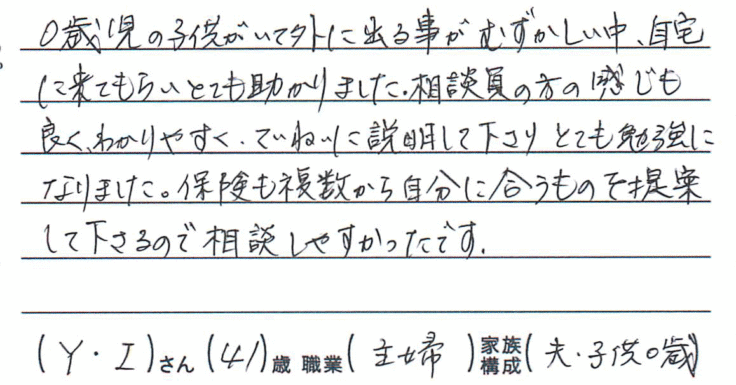 0歳児の子供がいて外に出る事がむずかしい中、自宅
に来てもらいとても助かりました。相談員の方の感じも
良く、わかりやすく、ていねいに説明して下さりとても勉強に
なりました。保険も複数から自分に合うものを提案
して下さるので相談しやすかったです。
(Y・I)さん(41)歳 職業(主婦)家族構成(夫・子供0歳)